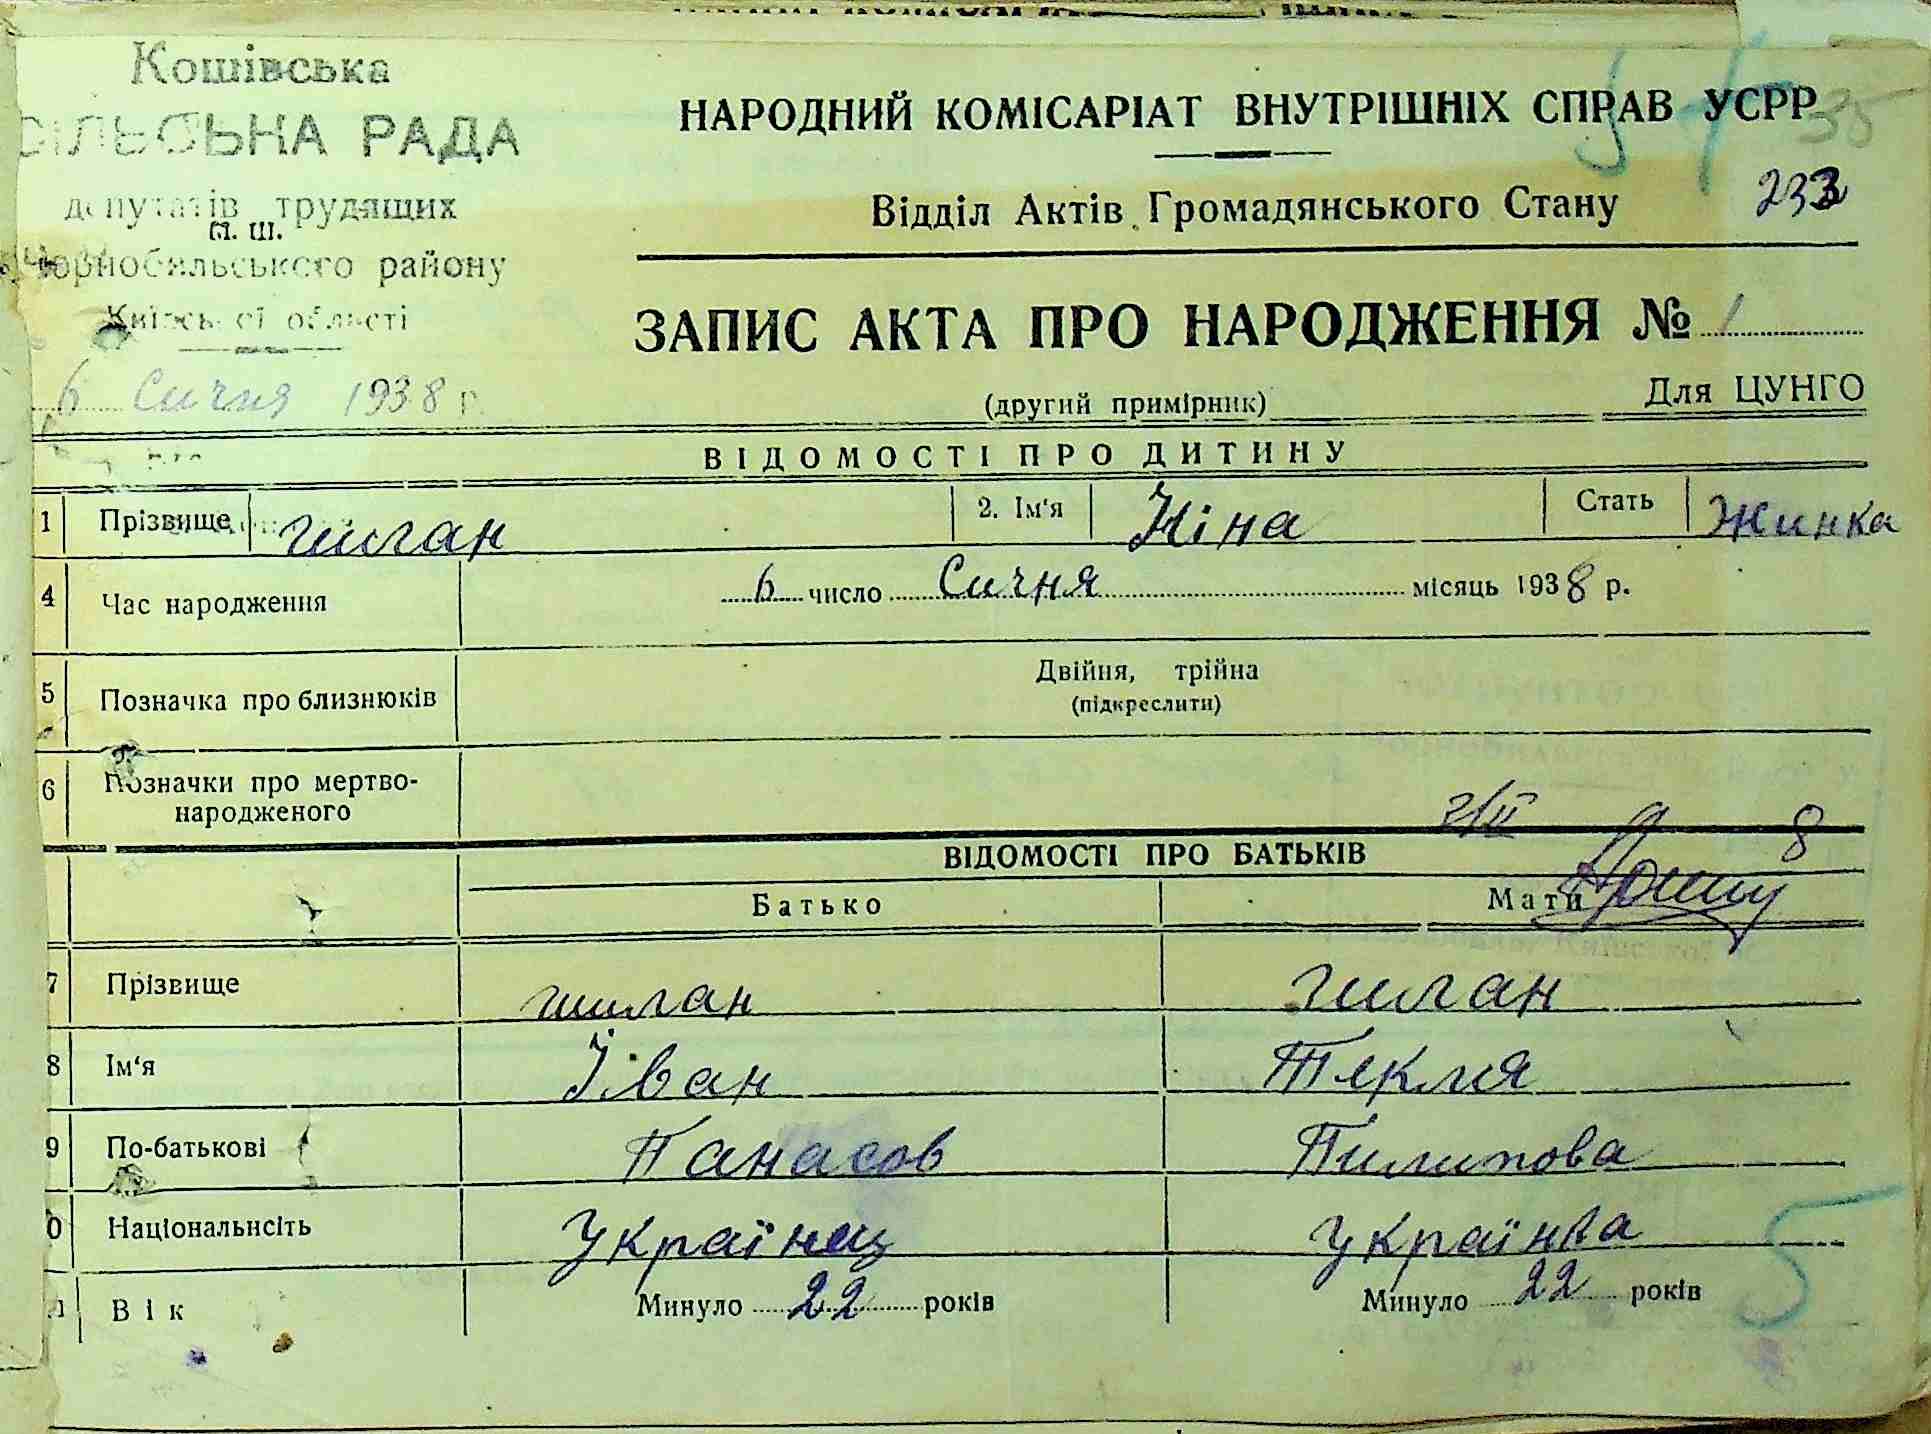 Кошівська
СІЛЬСЬКА РАДА
депутатів трудящих
п. ш.
Чорнобильського району
Київської області
6 Сичня 1938 р.
НАРОДНИЙ КОМІСАРІАТ ВНУТРІШНІХ СПРАВ УСРР
35
Відділ Актів Громадянського Стану
233
ЗАПИС АКТА ПРО НАРОДЖЕННЯ № 1
(другий примірник)
Для ЦУНГО
ВІДОМОСТІ ПРО ДИТИНУ
1 Прізвище шиган 2. Ім'я Ніна Стать Жинка
4 Час народження 6 число Сичня місяць 1938 р.
5 Позначка про близнюків Двійня, трійна
(підкреслити)
6 Позначки про мертво-
народженого
2/II 8
ВІДОМОСТІ ПРО БАТЬКІВ
Батько Мати
7 Прізвище шиган шиган
8 Ім'я Іван Текля
9 По-батькові Панасов Пилипова
0 Національнсіть Українец Українка
5
Вік Минуло 22 років Минуло 22 років